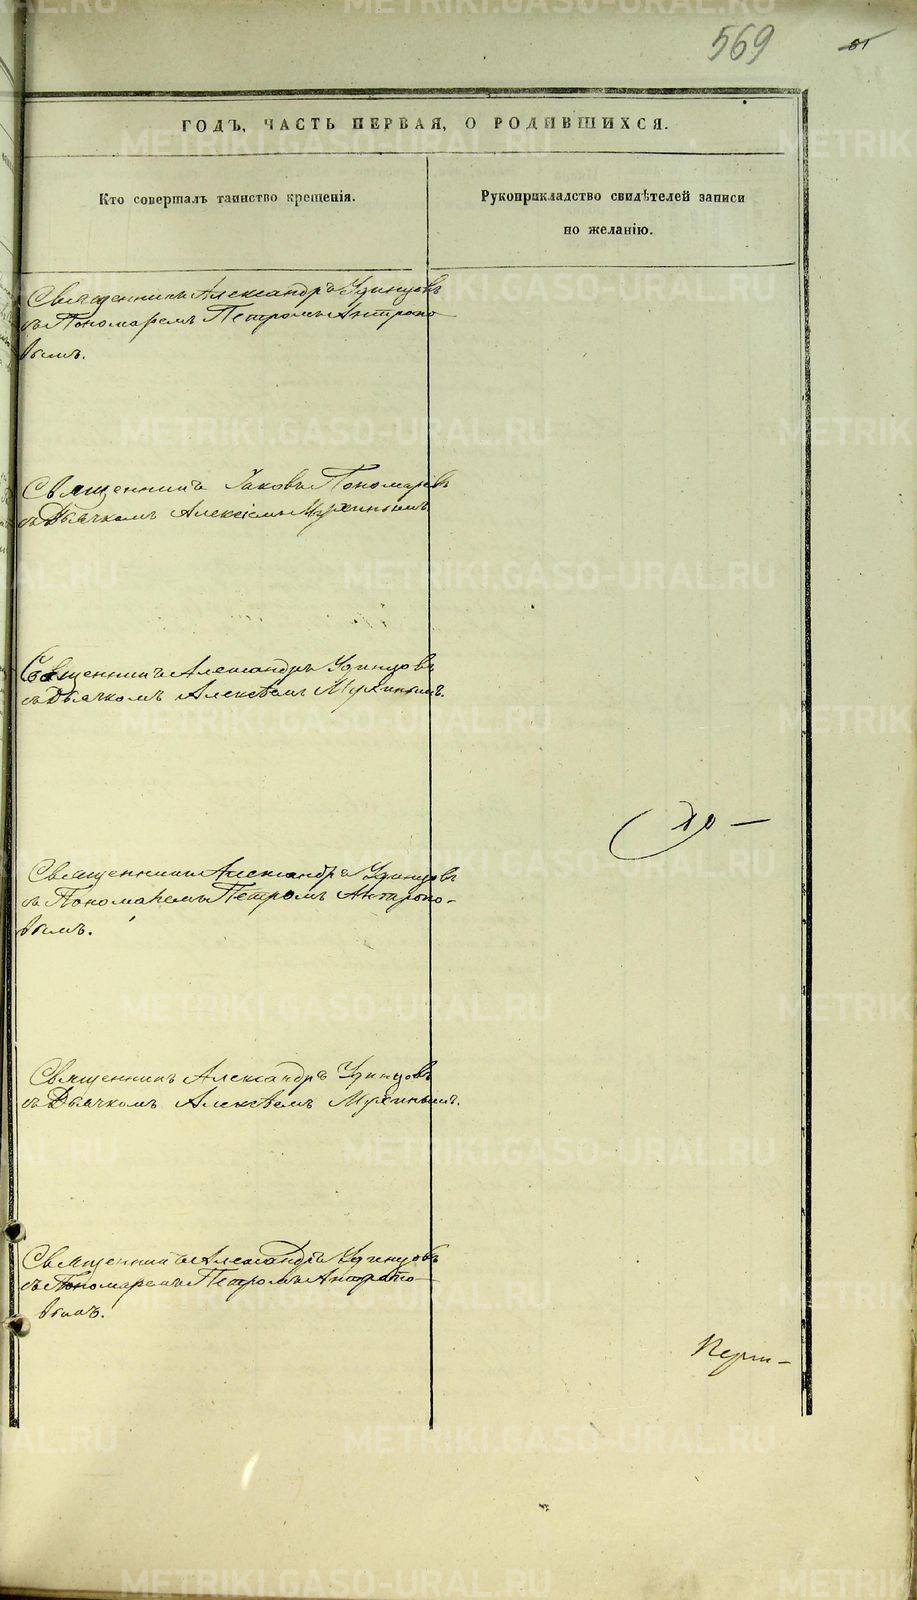 569
81
ГОДЪ, ЧАСТЬ ПЕРВАЯ, О РОДИВШИХСЯ.
Кто совершалъ таинство крещенія.
Рукоприкладство свидѣтелей записи
по желанію.
Священникъ Александръ Удинцовъ
съ Пономаремъ Петромъ Антропо-
вымъ.
Священникъ Іаковъ Пономаревъ
съ Дьячкомъ Алексіемъ Мухинымъ
Священникъ Александръ Удинцовъ
съ Дьячкомъ Алексѣемъ Мухинымъ.
Священникъ Александръ Удинцовъ
съ Пономаремъ Петромъ Антропо-
вымъ.
Священникъ Александръ Удинцовъ
съ Дьячкомъ Алексѣемъ Мухинымъ.
Священникъ Александръ Удинцовъ
съ Пономаремъ Петромъ Антропо-
вымъ.
METRIKI.GASO-URAL.RU